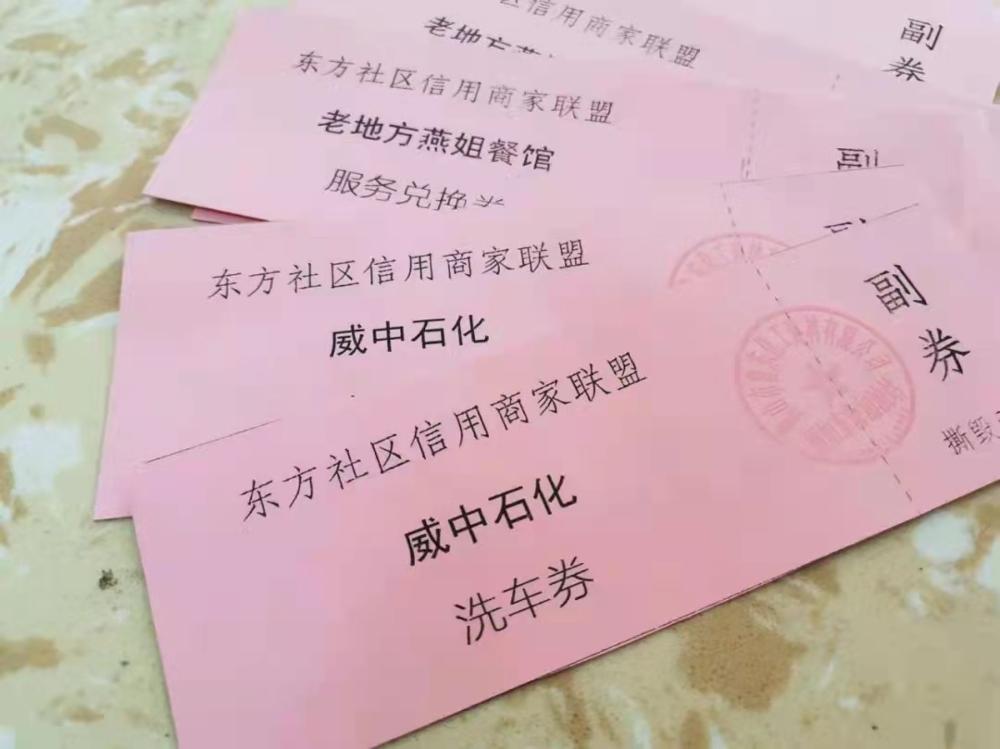 区信用商家联盟
老地方燕
副券
东方社区信用商家联盟
老地方燕姐餐馆
服务兑换券
副
东方社区信用商家联盟
威中石化
副
东方社区信用商家联盟
威中石化
洗车券
副券
撕毁